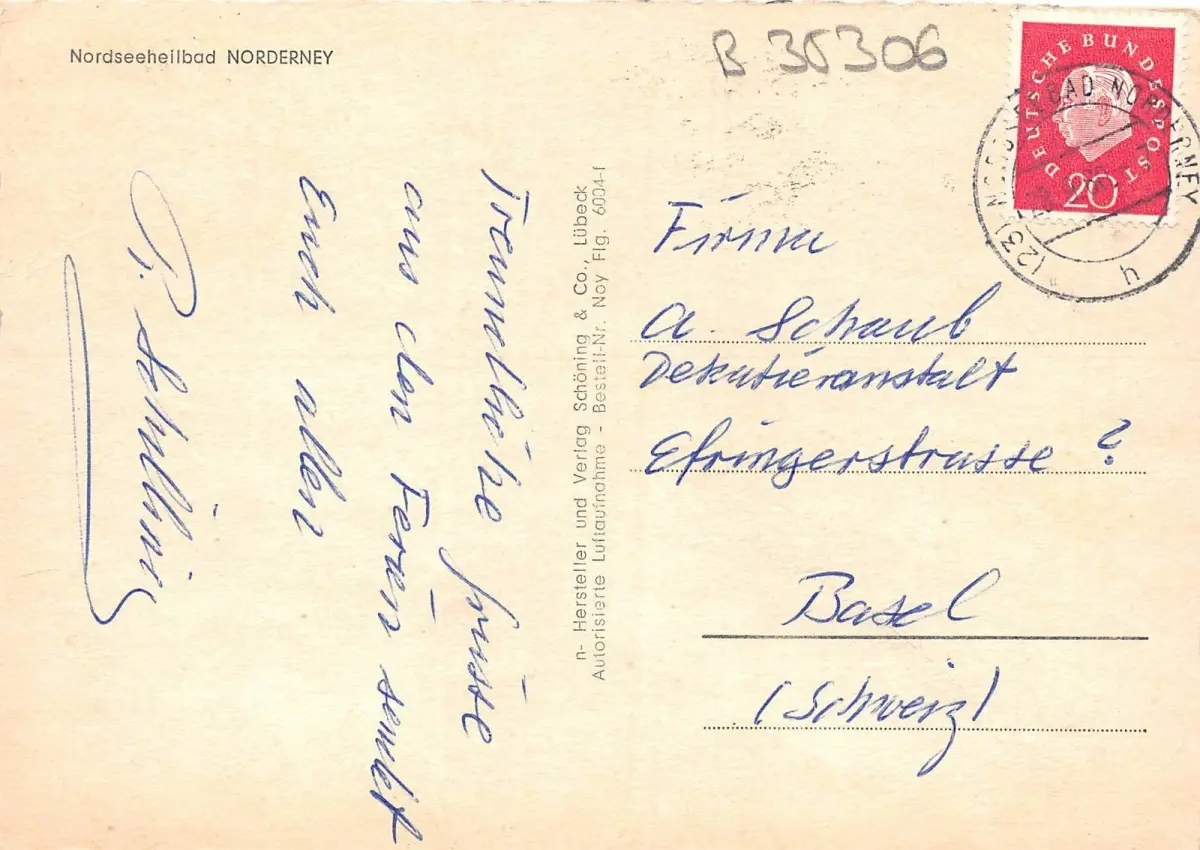 Nordseeheilbad NORDERNEY
B 35306
DEUTSCHE BUNDESPOST
20
(23) NORDSEEBAD NORDERNEY
h
Freundliche Grüsse
aus den Ferien sendet
Euch allen
n- Hersteller und Verlag Schöning & Co., Lübeck
Autorisierte Luftaufnahme - Bestell-Nr. Noy Flg. 6004-f
Firma
A. Schaub
Dekatieranstalt
Efringerstrasse ?
Basel
(Schweiz)